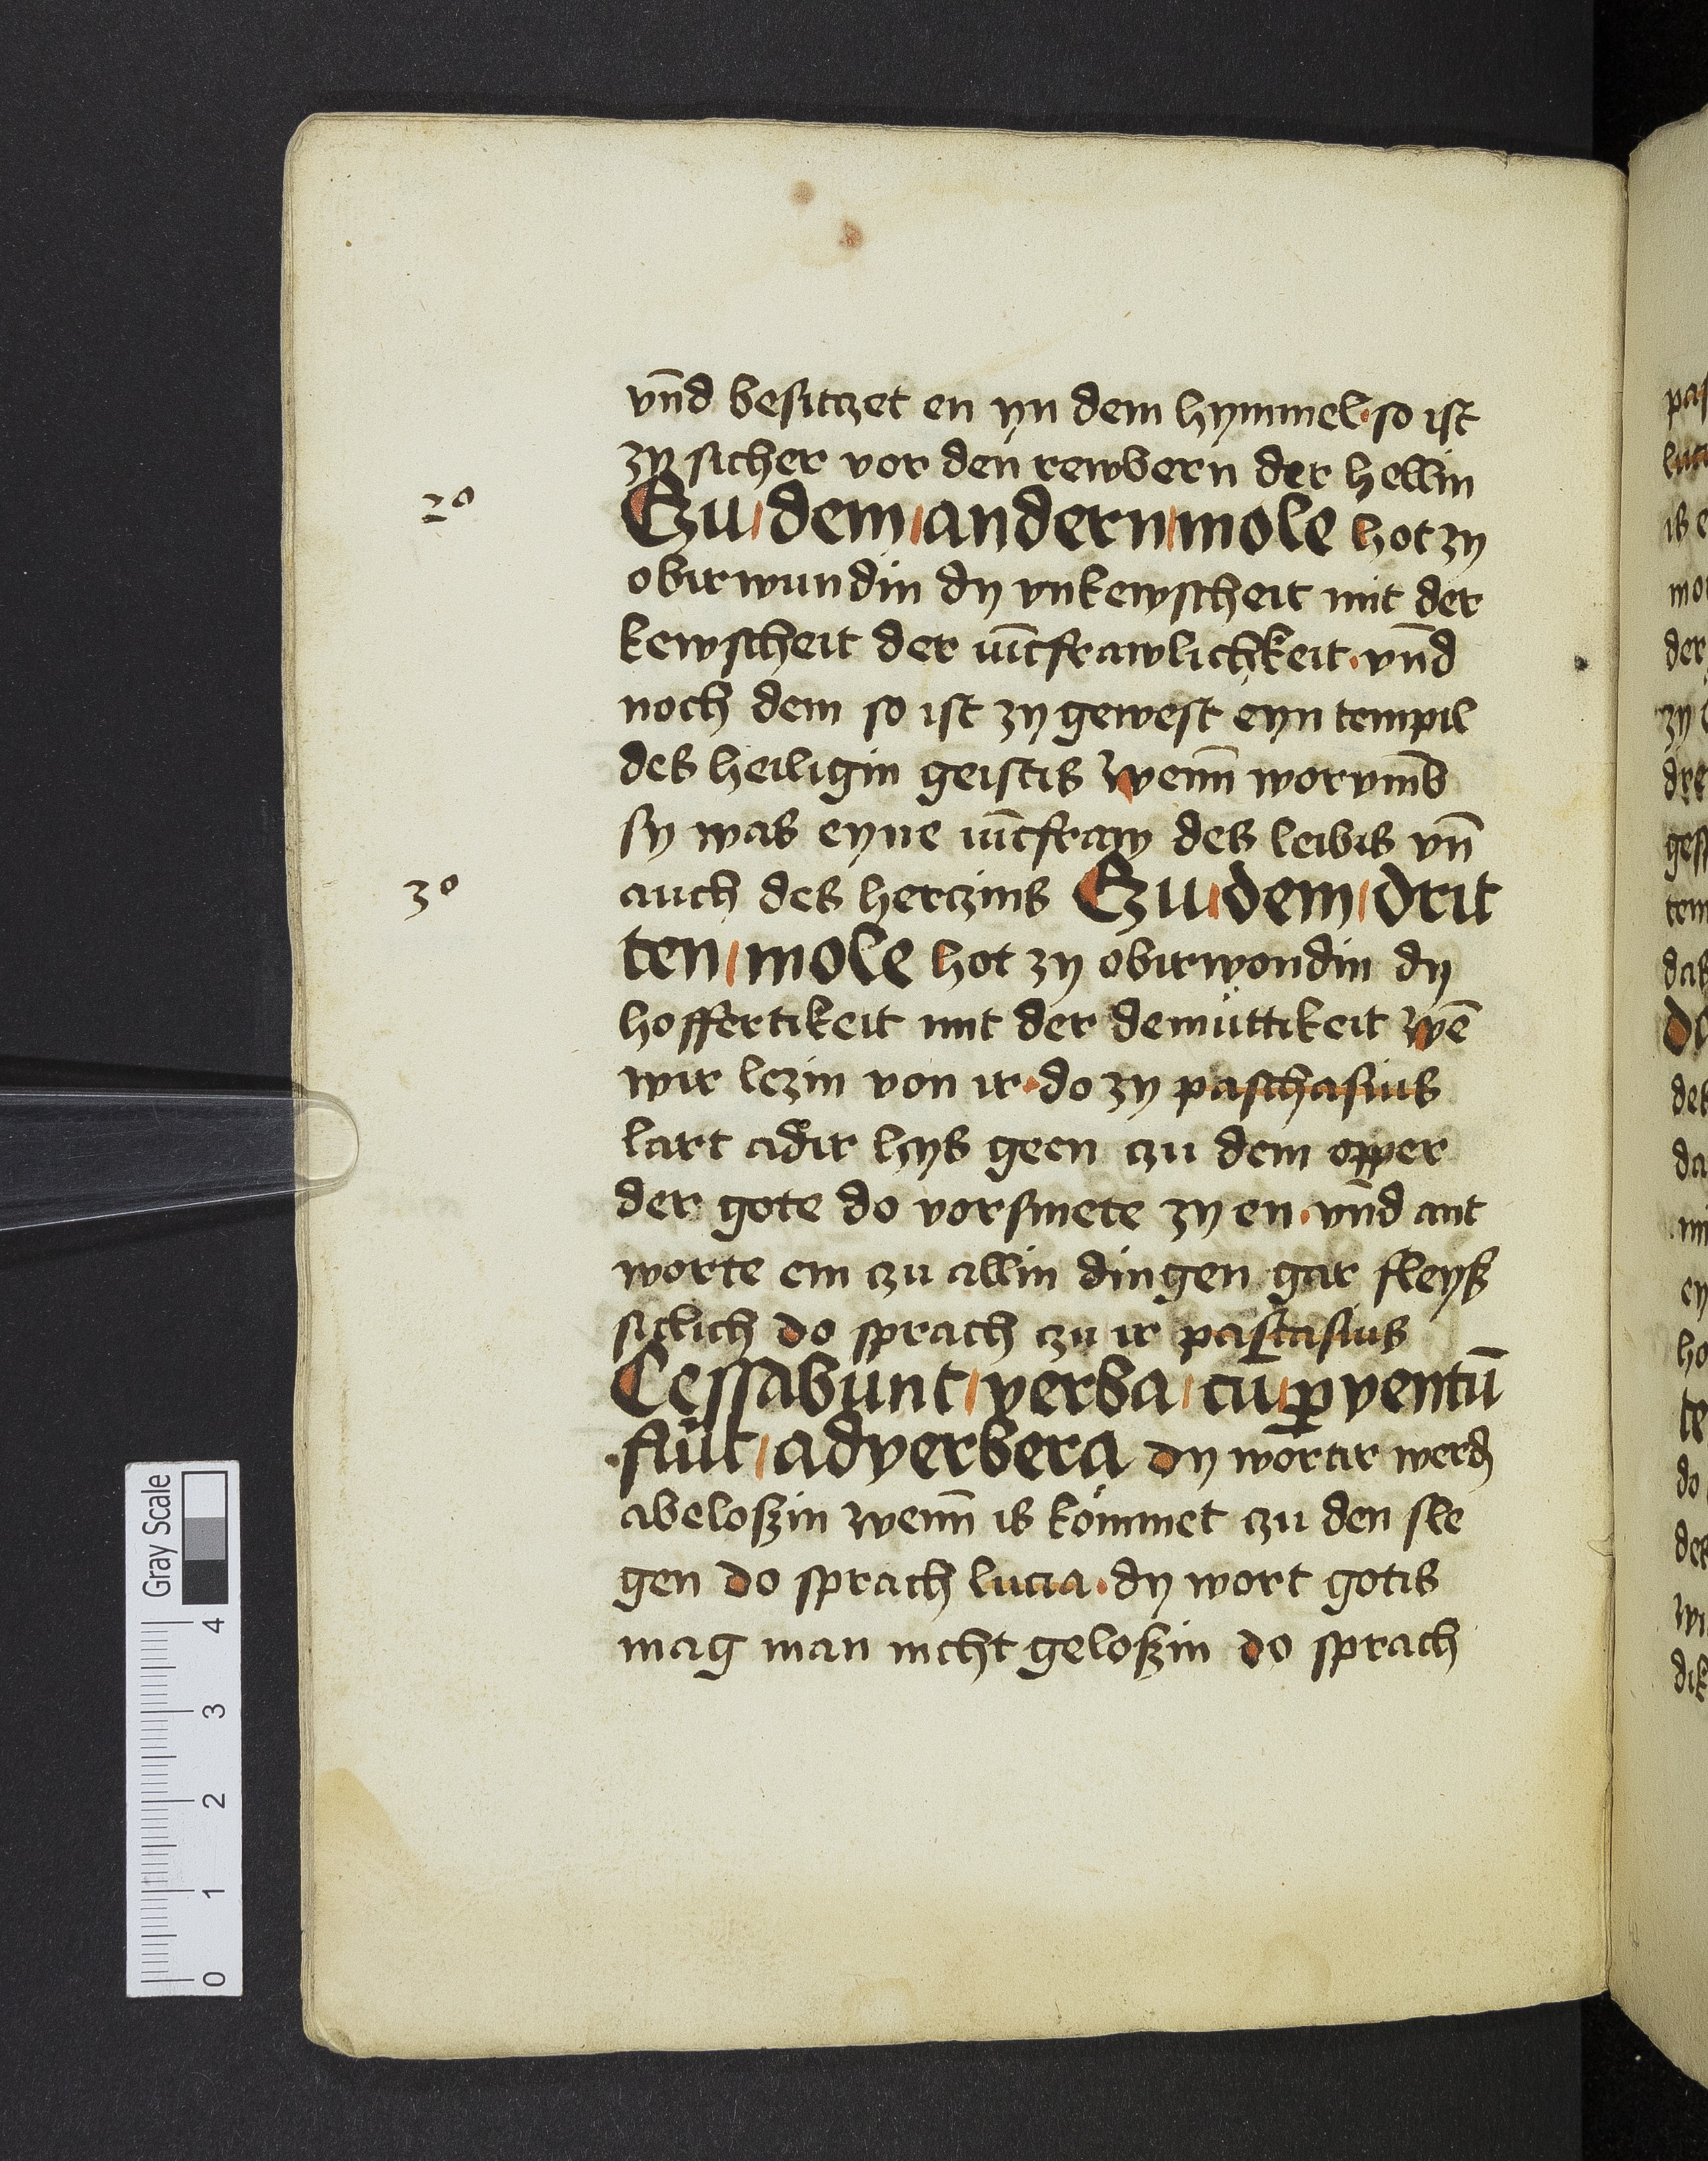 vn̄d besitczet en yn dem hymmel·so ist
zy sicher vor den rewbern der hellin
2º
Czu dem andern mole hot zy
obirwundin dy vnkewscheit mit der
kewscheit der iūcfrawlichkeit·vn̄d
noch dem so ist zy gewest eyn tempil
des heiligin geistis wenn̄ worvm̄b
sy was eyne iūcfraw des leibis vn̄
3º
auch des herczins Czu dem drit
ten mole hot zy obirwondin dy
hoffertikeit mit der demüttikeit wē
wir lezin von ir·do zy paschasius
lart adir hys geen czu dem opper
der gote do vorsmete zy en·vn̄d ant
worte em czu allin dingen gar fleyß
siclich do sprach czu ir pascasius
Cessabunt verba cu ꝑventū
fūit ad verbera dy wortir werdn
abeloßin wenn̄ is kömmet czu den sle
gen do sprach lucia·dy wort gotis
mag man nicht geloßin do sprach
Gray Scale
4
3
2
1
0